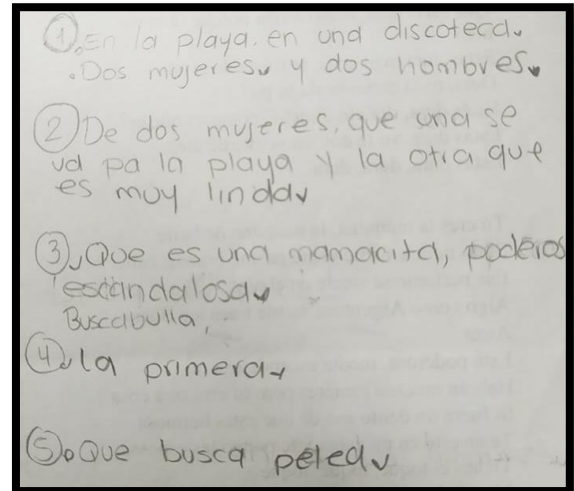 ①. En la playa. en una discoteca.
. Dos mujeres y dos hombres.
② De dos mujeres, que una se
va pa la playa y la otra que
es muy linda
③, Que es una mamacita, poderos
escandalosa
Buscabulla,
④ la primera
⑤. Que busca pelea